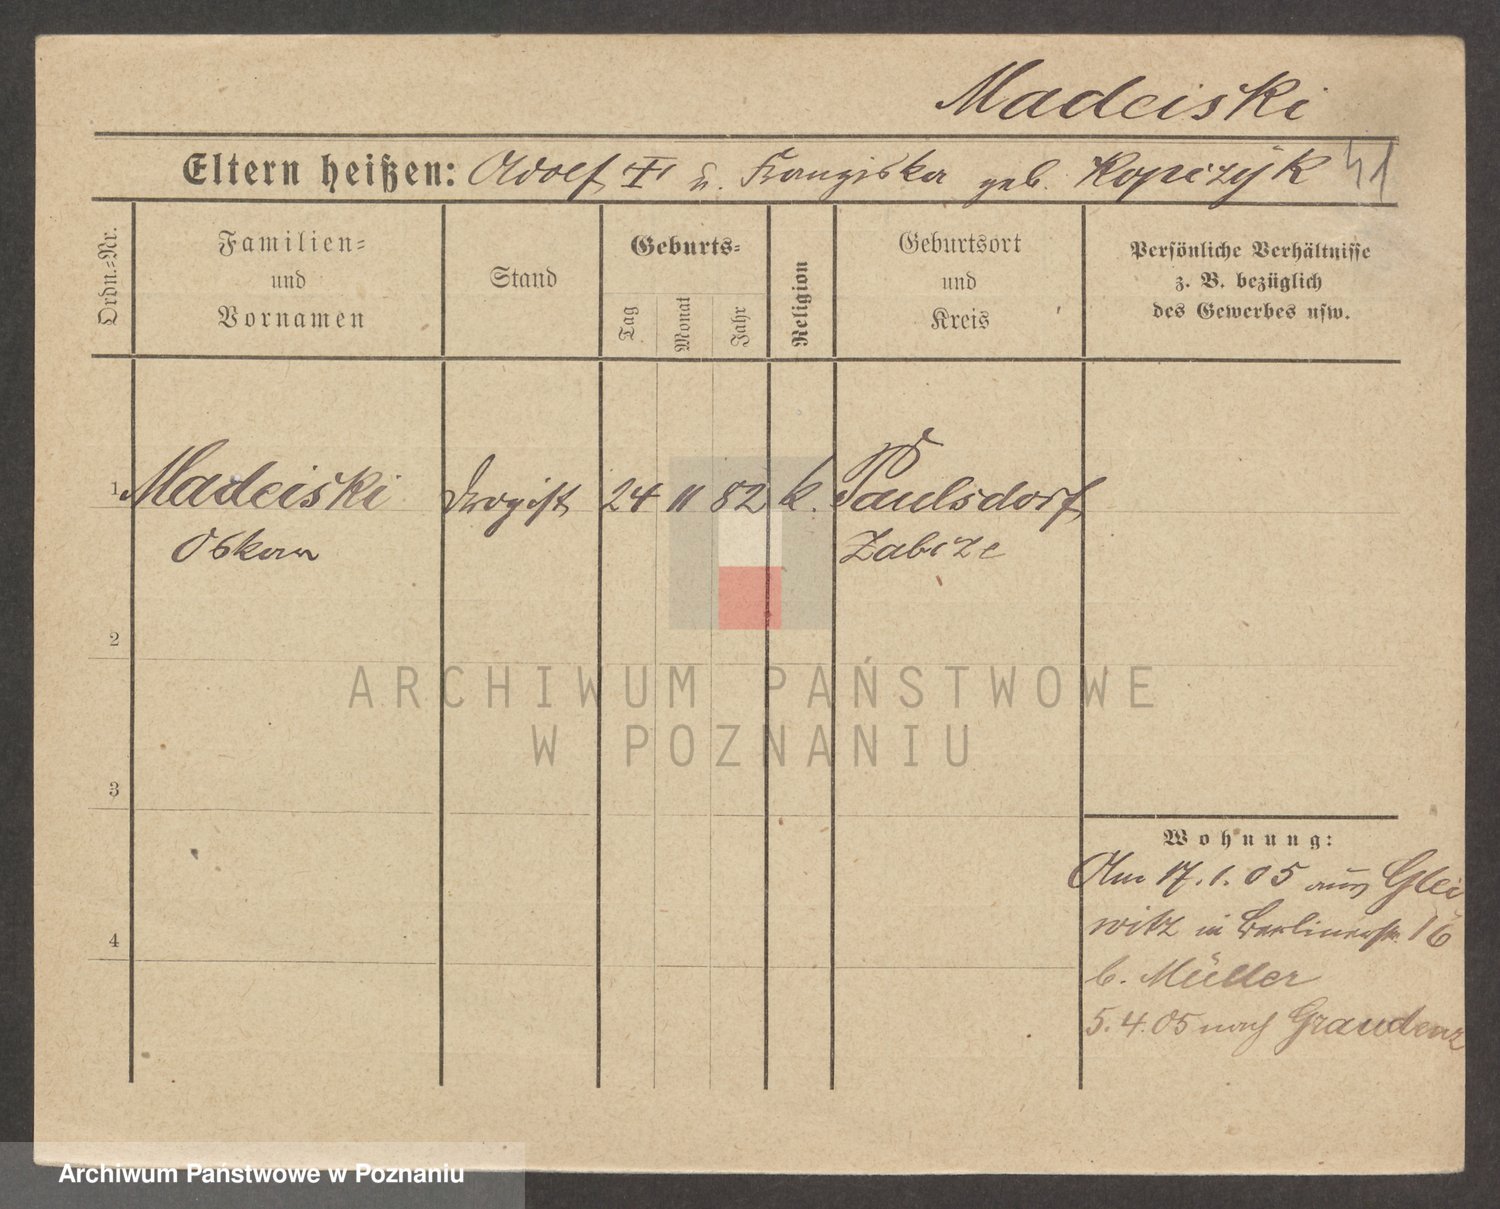 Madeiski
Eltern heißen: Adolf † u. Franziska geb. Kopiczyk 41
Ordn.-Nr.
Familien-
und
Vornamen
Stand
Geburts-
Tag
Monat
Jahr
Religion
Geburtsort
und
Kreis
Persönliche Verhältnisse
z. B. bezüglich
des Gewerbes usw.
1 Madeiski Drogist 24 11 82 k. Paulsdorf
Oskar Zabrze
2
ARCHIWUM PAŃSTWOWE
W POZNANIU
3
Wohnung:
Am 17.1.05 aus Glei
witz in Berlinerstr. 16
4
b. Müller
5.4.05 nach Graudenz
Archiwum Państwowe w Poznaniu